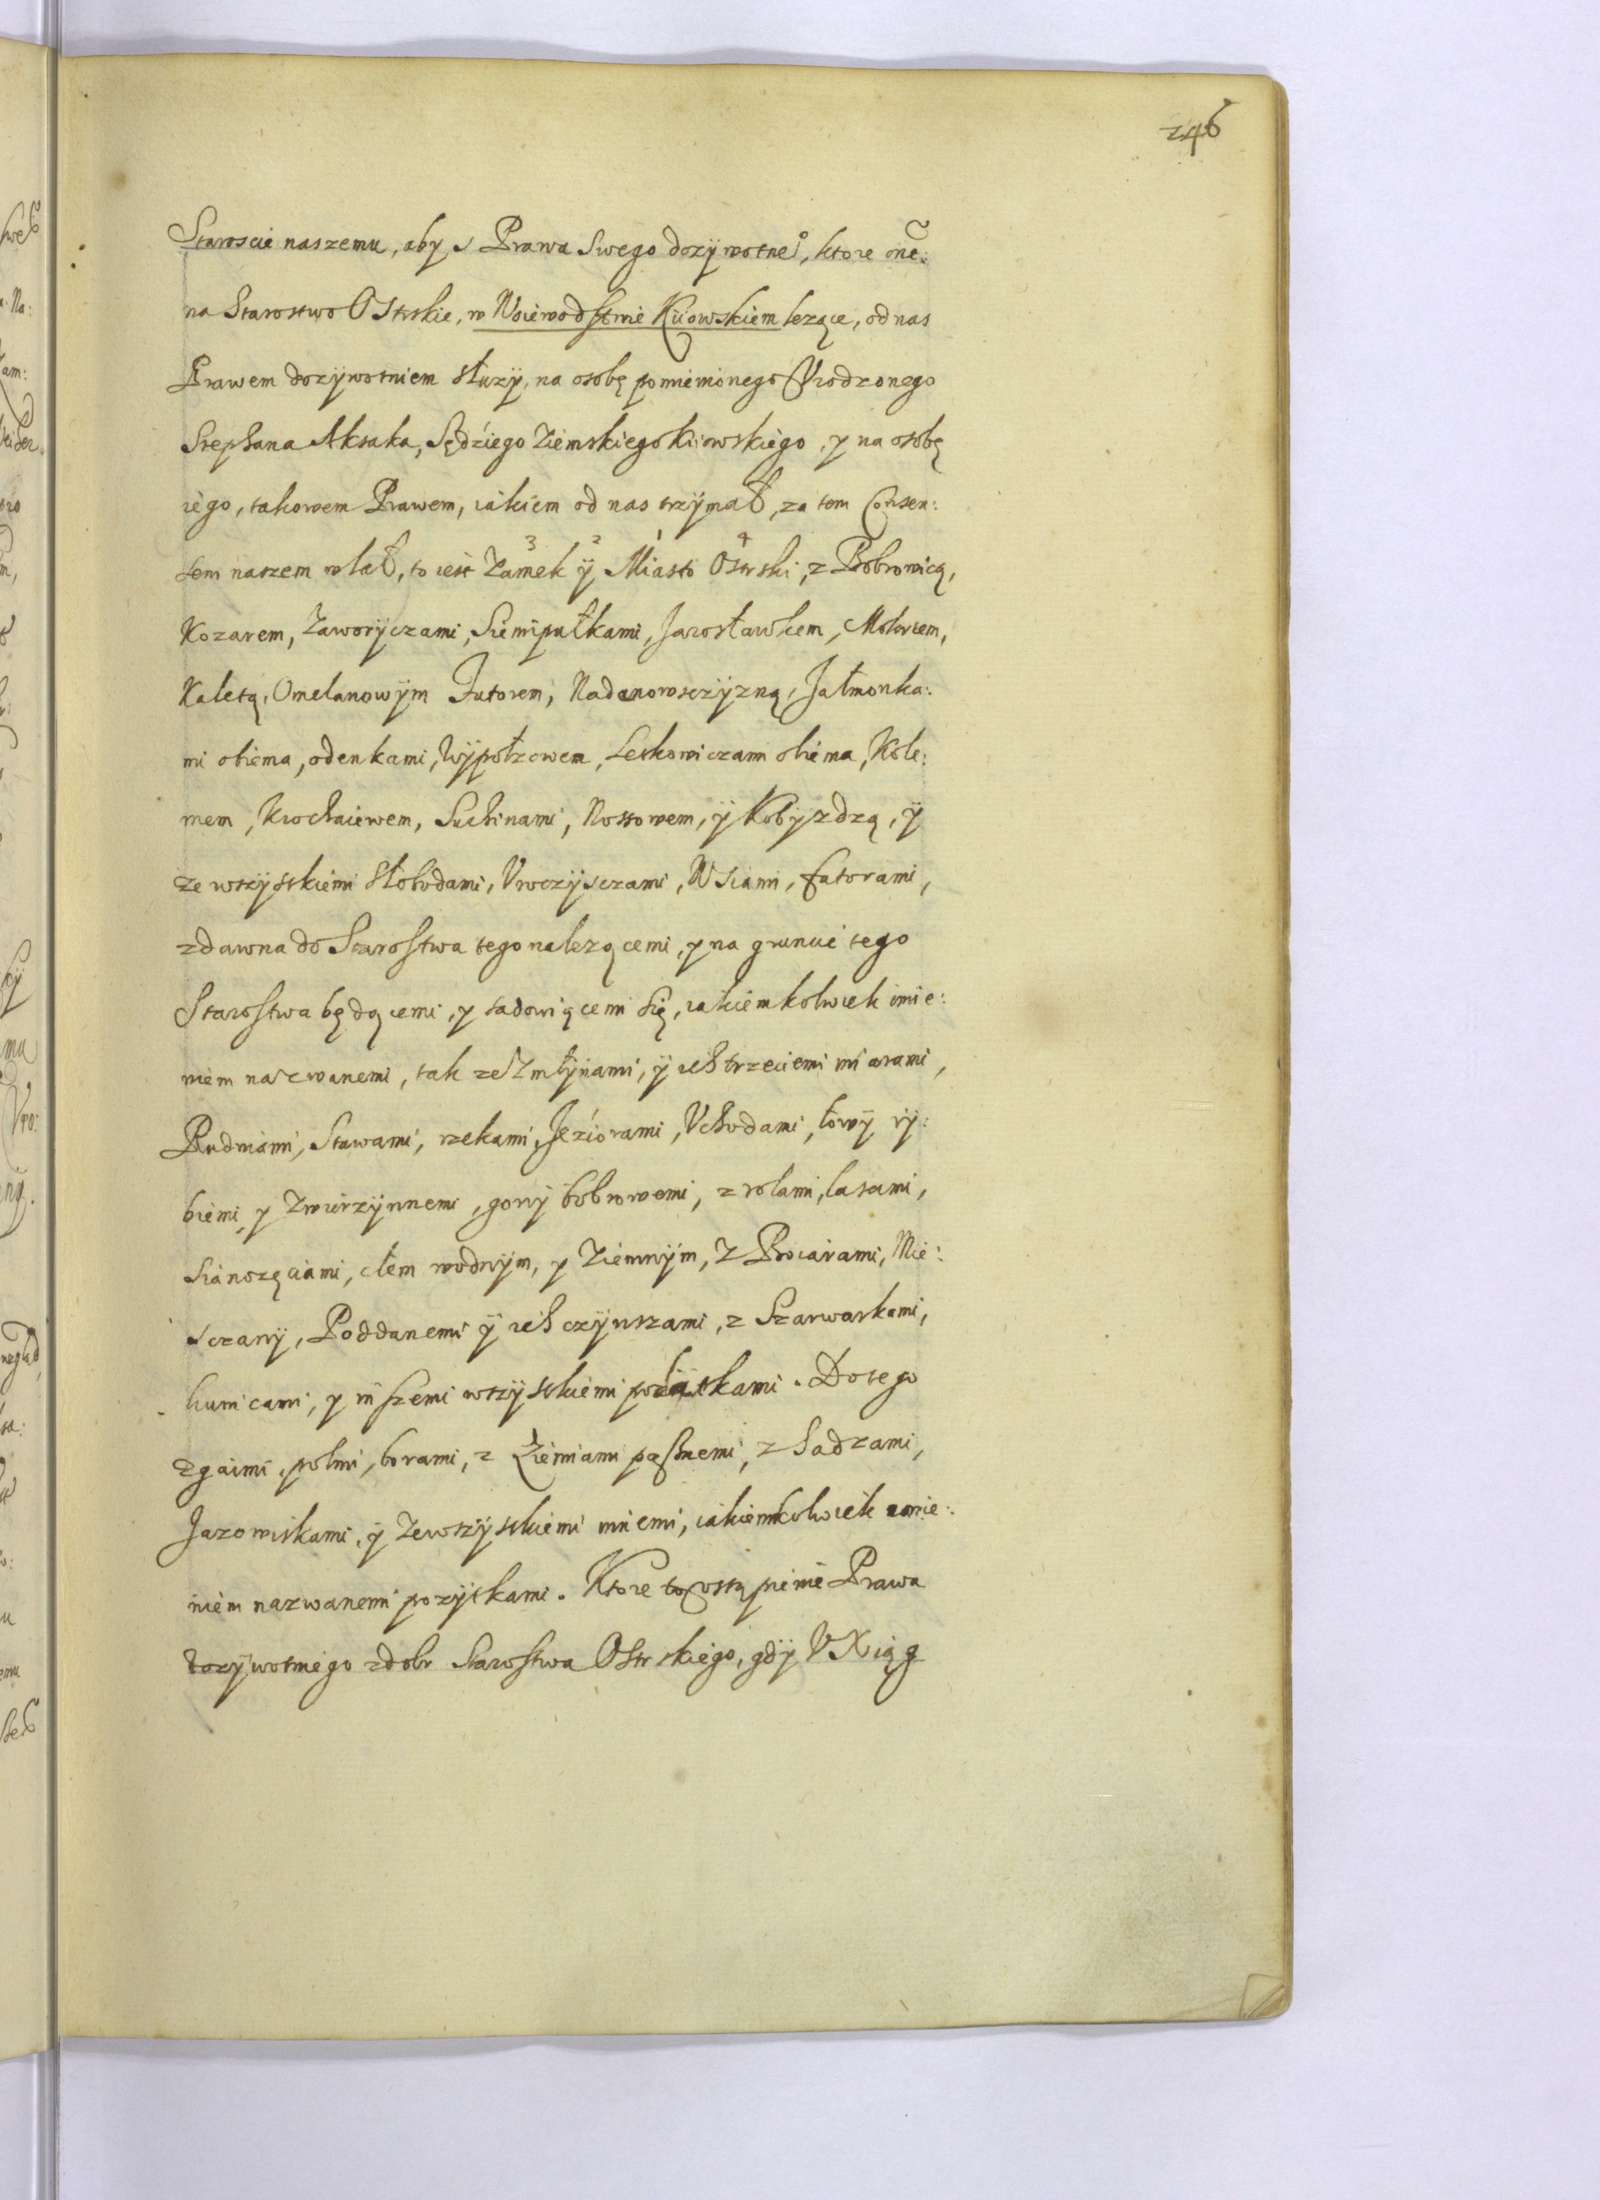 246
Staroscie naszemu, aby s Prawa Swego dozywotne°, ktore one:
na Starostwo Ostrskie, w Woiewodstwie Kiiowskiem lezące, od nas
Prawem dozywotniem słuzy, na osobę pomienionego Vrodzonego
Stephana Aksaka, Sędziego Ziemskiego Kiiowskiego, y na osobę
iego, takowem Prawem, iakiem od nas trzymał, za tem Consen:
sem naszem wlał, to iest Zamek ÿ Miasto Ostrski, z Bobrowicą,
3 2 1 4
Kozarem, Zaworÿczami, Siemipałkami, Jarosławkem, Mokrcem,
Kaletą, Omelanowÿm Futorem, Nadanowsczÿzną, Jałmonka:
mi obiema, odenkami, Wÿpołzowem, Leskowiczami obiema, Kole:
mem, Krochaiewem, Suchinami, Nossowem, ÿ Kobÿzdzą, ÿ
ze wszÿstkiemi Słobodami, Vroczÿsczami, Wsiami, futorami,
zdawna do Starostwa tego nalezącemi, y na gruncie tego
Starostwa będącemi, y sadowiącemi się, iakiemkolwiek imie:
niem nazwanemi, tak ze Zmłÿnami, ÿ ich trzeciemi miarami,
Rudniami, Stawami, rzekami, Jeziorami, Vchodami, łowÿ rÿ:
biemi, y Zwierzÿnnemi, gonÿ bobrowemi, z rolami, lasami,
Sianozęciami, cłem wodnÿm, y Ziemnÿm, Z Boiarami, Mie:
sczanÿ, Poddanemi ÿ ich czÿnszami, z Szarwarkami,
kunicami, y inszemi wszÿstkiemi pozÿtkami. Do tego
zgaimi, polmi, borami, z Ziemiami pasznemi, z Sadzami,
Jazowiskami, ÿ Zewszÿstkiemi innemi, iakiemkolwiek imie:
niem nazwanemi pozÿtkami. Ktore to vstąpienie Prawa
dozÿwotniego zdobr Starostwa Ostrskiego, gdÿ V Xiąg